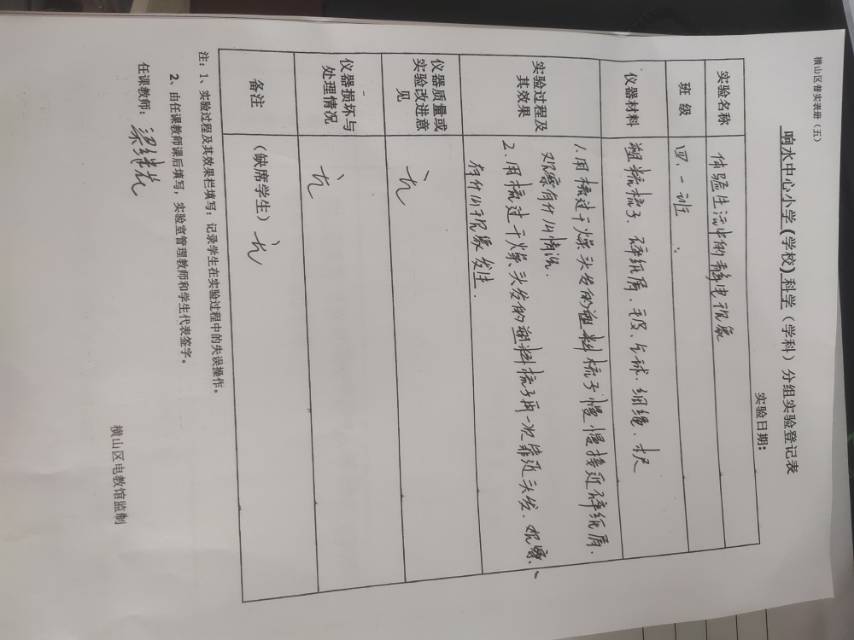 横山区普实表册（五）
响水中心小学(学校)科学（学科）分组实验登记表
实验日期：
实验名称
体验生活中的静电现象
班 级
四.一班
仪器材料
塑料梳子、碎纸屑、气球、细绳、
实验过程及其效果
1.用梳过干燥头发的塑料梳子慢慢接近碎纸屑.
观察有什么情况.
2.用梳过干燥头发的塑料梳子再一次靠近头发.观察
有什么现象发生.
仪器质量或实验改进意见
无
仪器损坏与处理情况
无
备注
（缺席学生）无
注：1、实验过程及其效果栏填写：记录学生在实验过程中的失误操作。
2、由任课教师课后填写，实验室管理教师和学生代表签字。
任课教师：
横山区电教馆监制